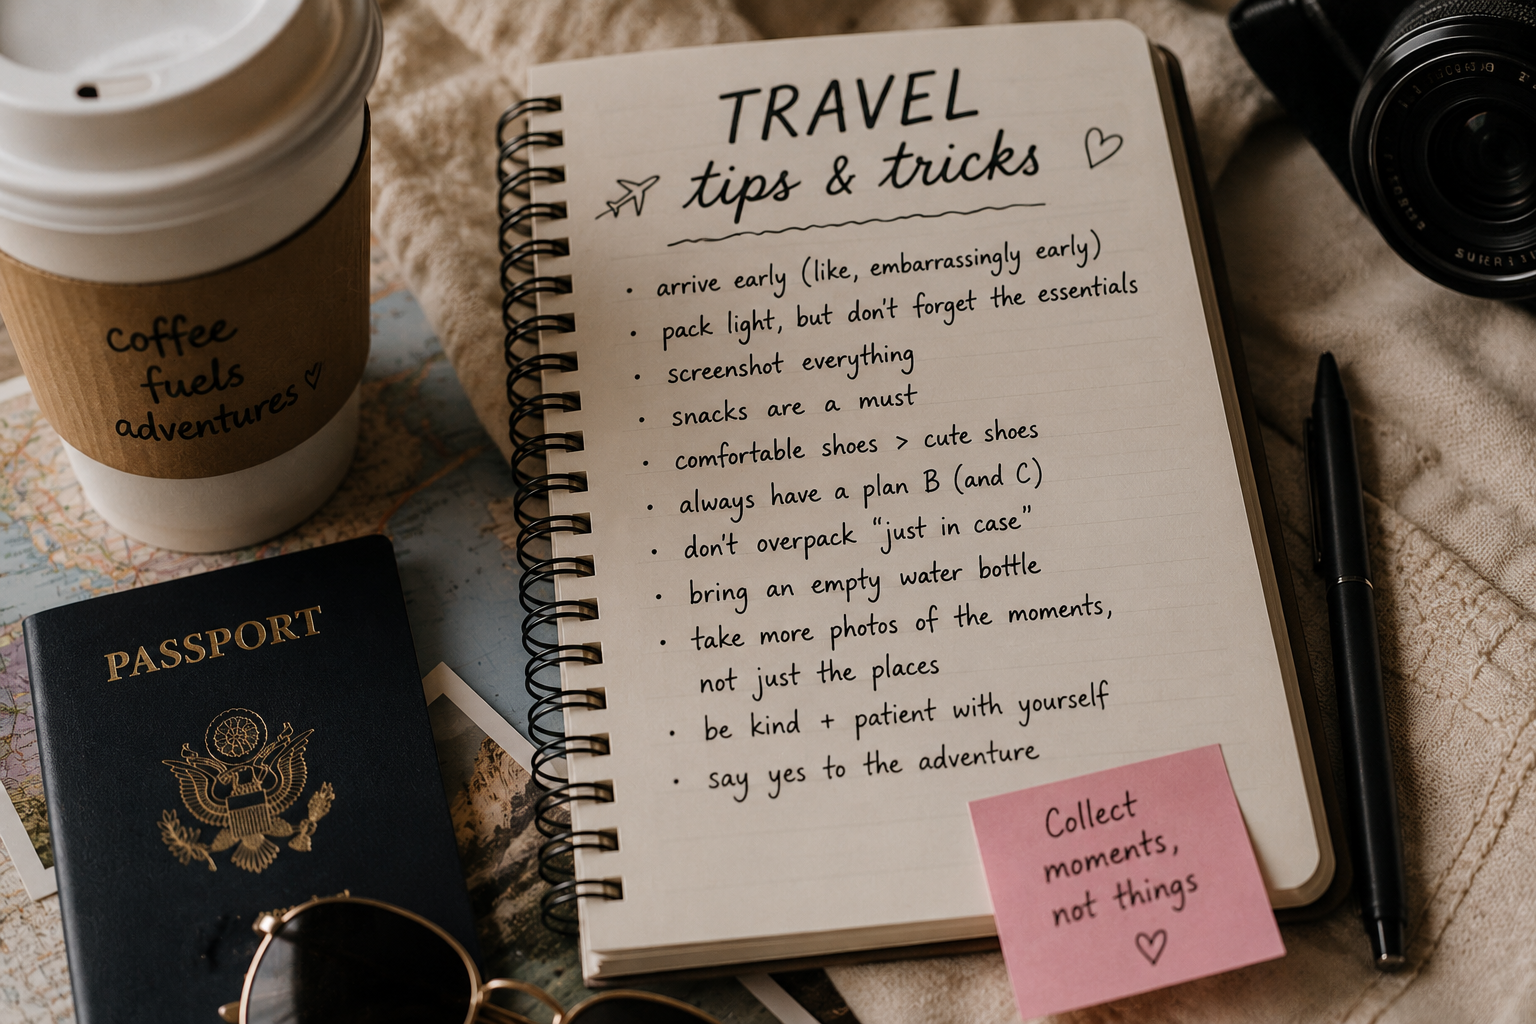 TRAVEL
tips & tricks
• arrive early (like, embarrassingly early)
• pack light, but don't forget the essentials
• screenshot everything
• snacks are a must
• comfortable shoes > cute shoes
• always have a plan B (and C)
• don't overpack “just in case”
• bring an empty water bottle
• take more photos of the moments,
not just the places
• be kind + patient with yourself
• say yes to the adventure
Collect
moments,
not things
coffee
fuels
adventures
PASSPORT